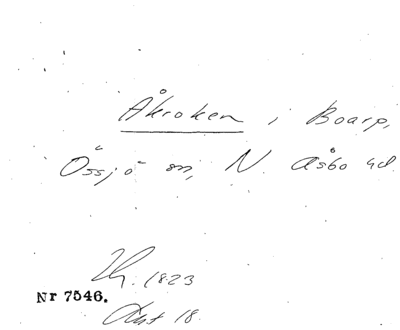 Åkroken i Boarp,
Össjö sn, N. Åsbo hd
1823
Nr 7546.
18.